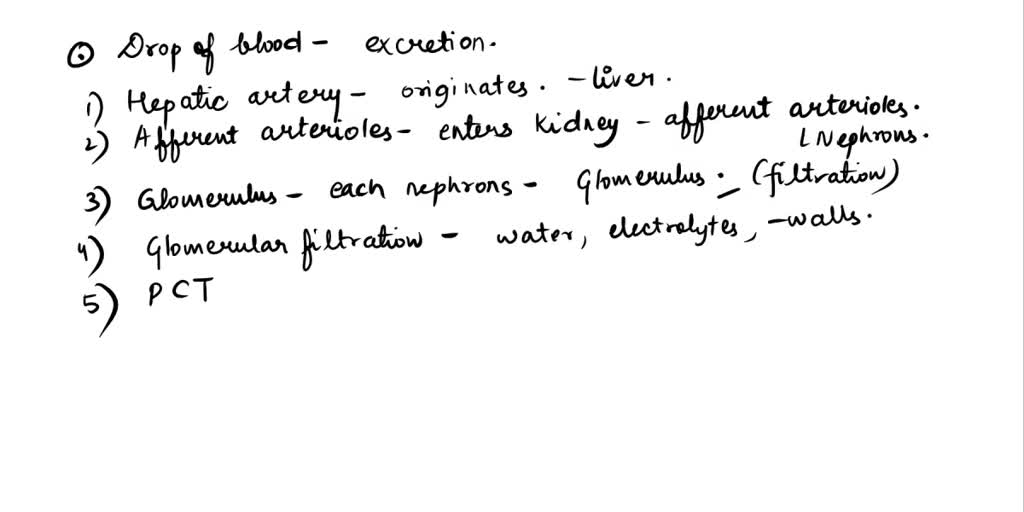 ⊙ Drop of blood – excretion.
1) Hepatic artery – originates. – liver.
2) Afferent arterioles – enters kidney – afferent arterioles.
L Nephrons.
3) Glomerulus – each nephrons – Glomerulus. – (filtration)
4) Glomerular filtration – water, electrolytes, – walls.
5) PCT